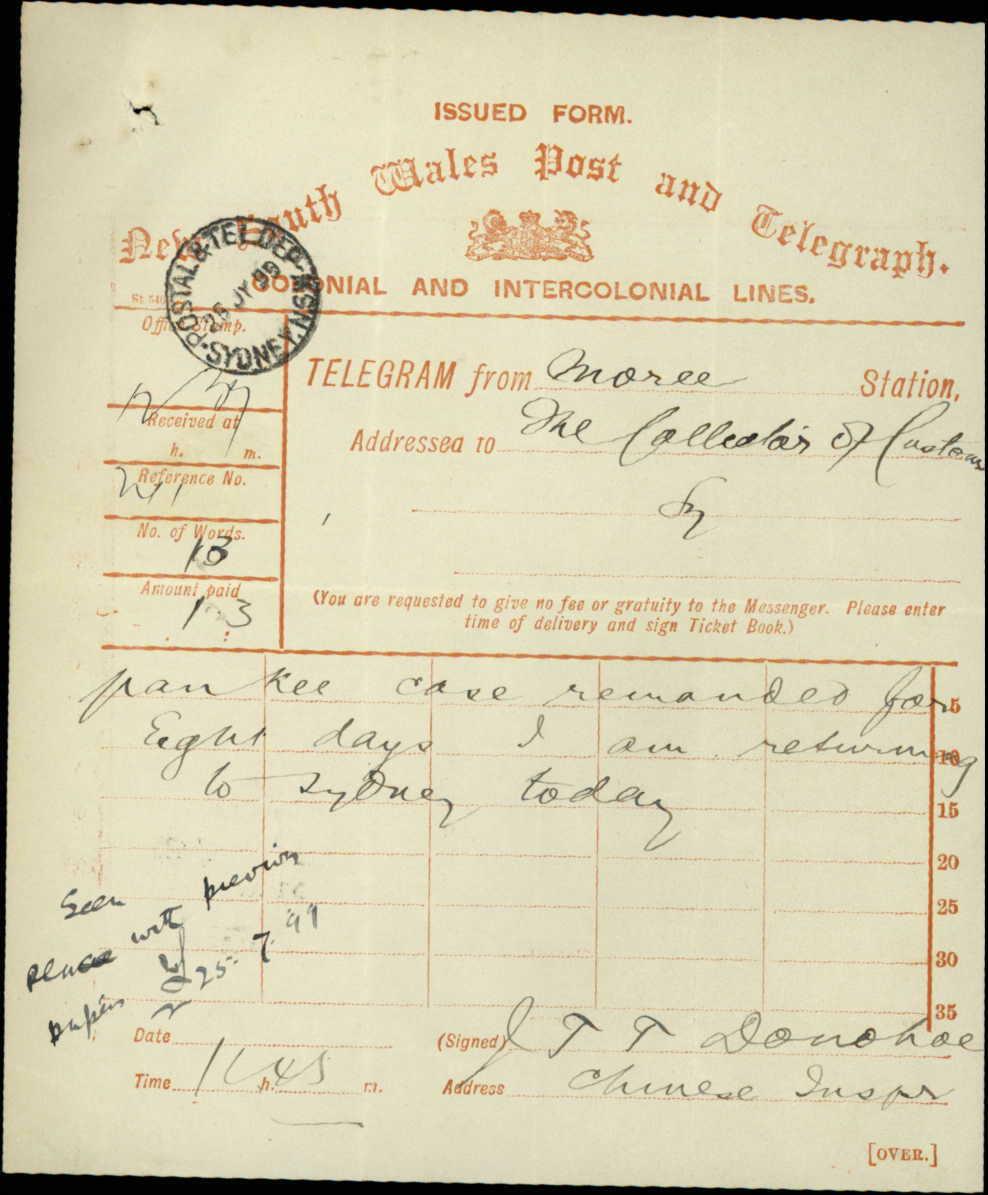 ISSUED FORM.
New South Wales Post and Telegraph.
COLONIAL AND INTERCOLONIAL LINES.
POSTAL & TEL. DEP. N.S.W.
25 JY 99
SYDNEY
Office Stamp.
TELEGRAM from Moree Station,
Received at
h. m.
Addressed to The Collector of Customs
Sy
Reference No.
No. of Words.
13
Amount paid
1 : 3
(You are requested to give no fee or gratuity to the Messenger. Please enter
time of delivery and sign Ticket Book.)
pan Kee case remanded for 5
Eight days I am returning 10
to Sydney today 15
20
25
30
35
Seen
please with previous
papers
25. 7. 99
Date
(Signed) J T T Donohoe
Time 1 h. 45 m.
Address Chinese Inspr
[OVER.]